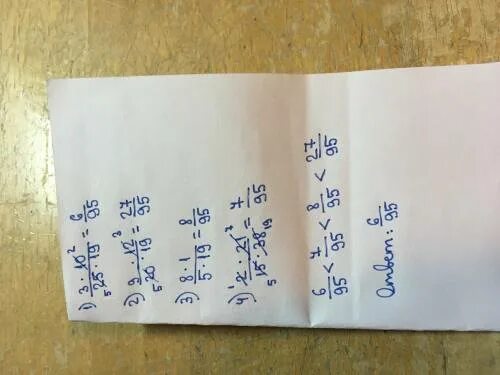 1) 3 · 10² / 5 25 · 19 = 6/95
2) 9 · 12³ / 5 20 · 19 = 27/95
3) 8 · 1 / 5 · 19 = 8/95
4) ¹2 · 21⁷ / 5 15 · 38 19 = 7/95
6/95 < 7/95 < 8/95 < 27/95
Ответ: 6/95